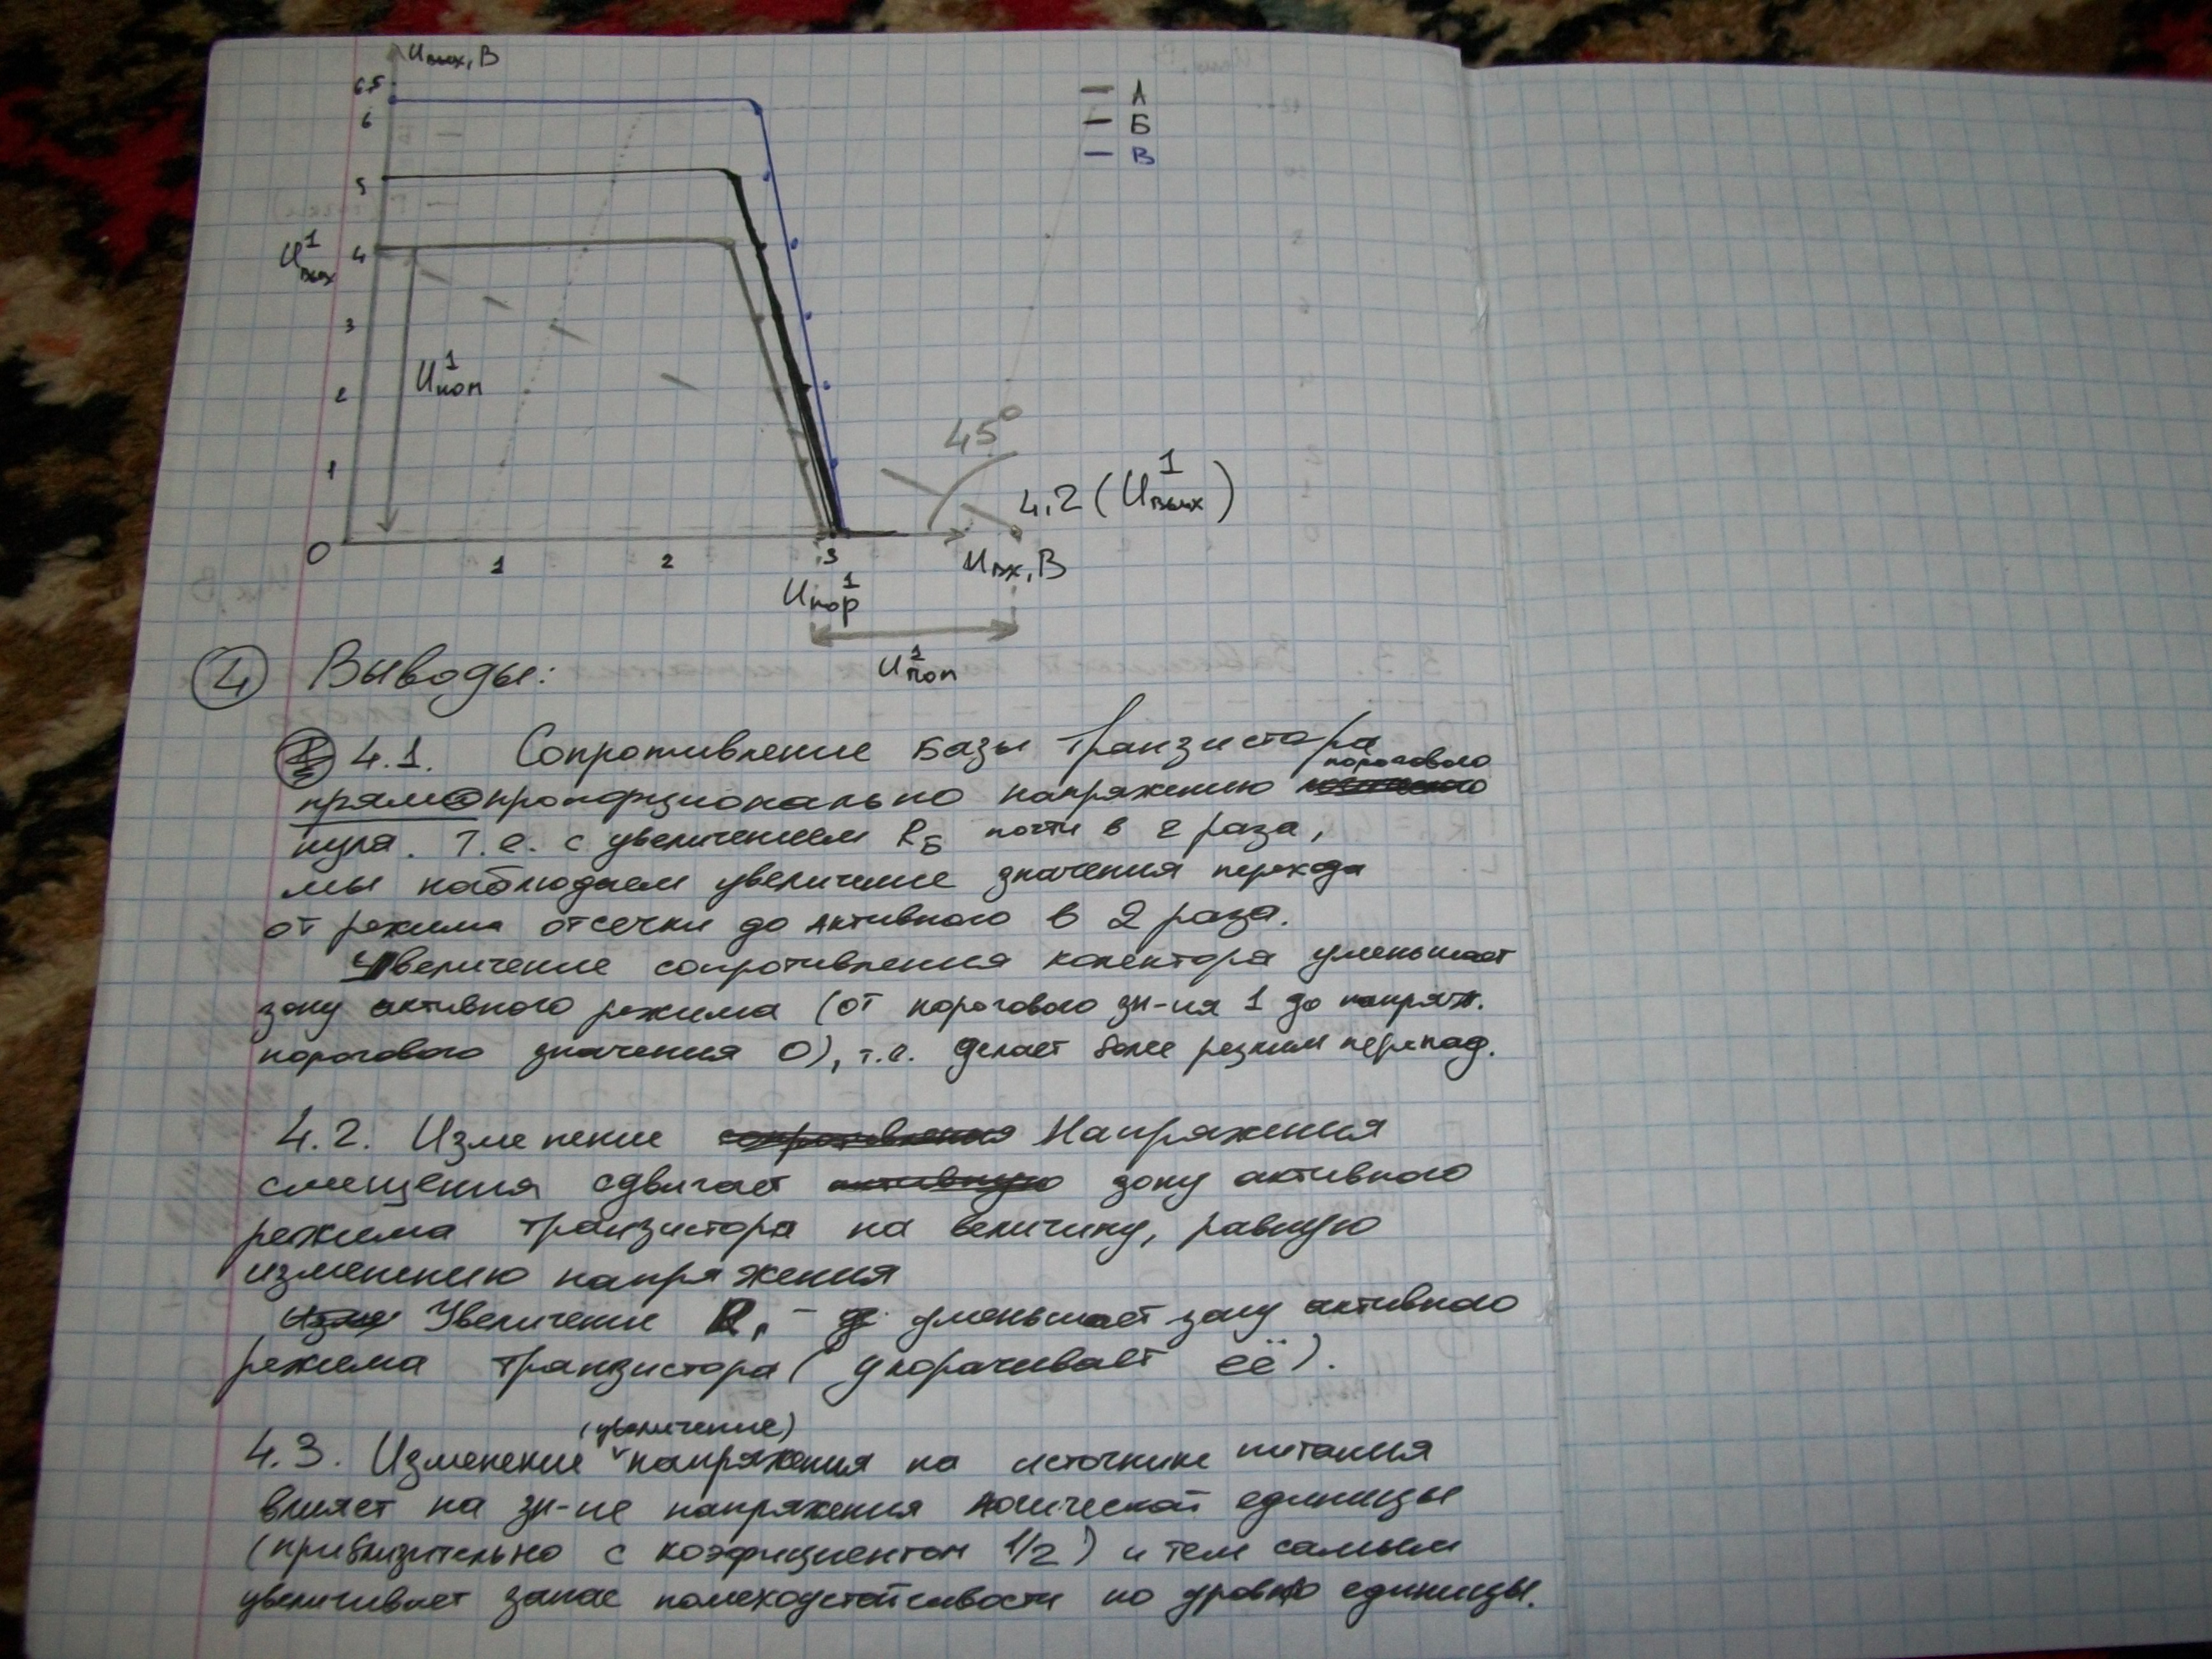 Uвых, В
6.5
6
5
U¹вых 4
3
2
1
0
1 2 3
А
Б
В
U¹поп
45°
4.2 (U¹вых)
Uвх, В
U¹пор
U¹поп
4 Выводы:
4.1. Сопротивление базы транзистора
порогового
прямопропорционально напряжению
нуля. Т.е. с увеличением RБ почти в 2 раза,
мы наблюдаем увеличение значения перехода
от режима отсечки до активного в 2 раза.
Увеличение сопротивления колектора уменьшает
зону активного режима (от порогового зн-ия 1 до напряж.
порогового значения 0), т.е. делает более резким перепад.
4.2. Изменение сопротивления Напряжения
смещения сдвигает активную зону активного
режима транзистора на величину, равную
изменению напряжения
Увеличение R₁ - уменьшает зону активного
режима транзистора (укорачивает её).
(увеличение)
4.3. Изменение напряжения на источнике питания
влияет на зн-ие напряжения логической единицы
(приблизительно с коэфициентом 1/2) и тем самым
увеличивает запас помехоустойчивости по уровню единицы.